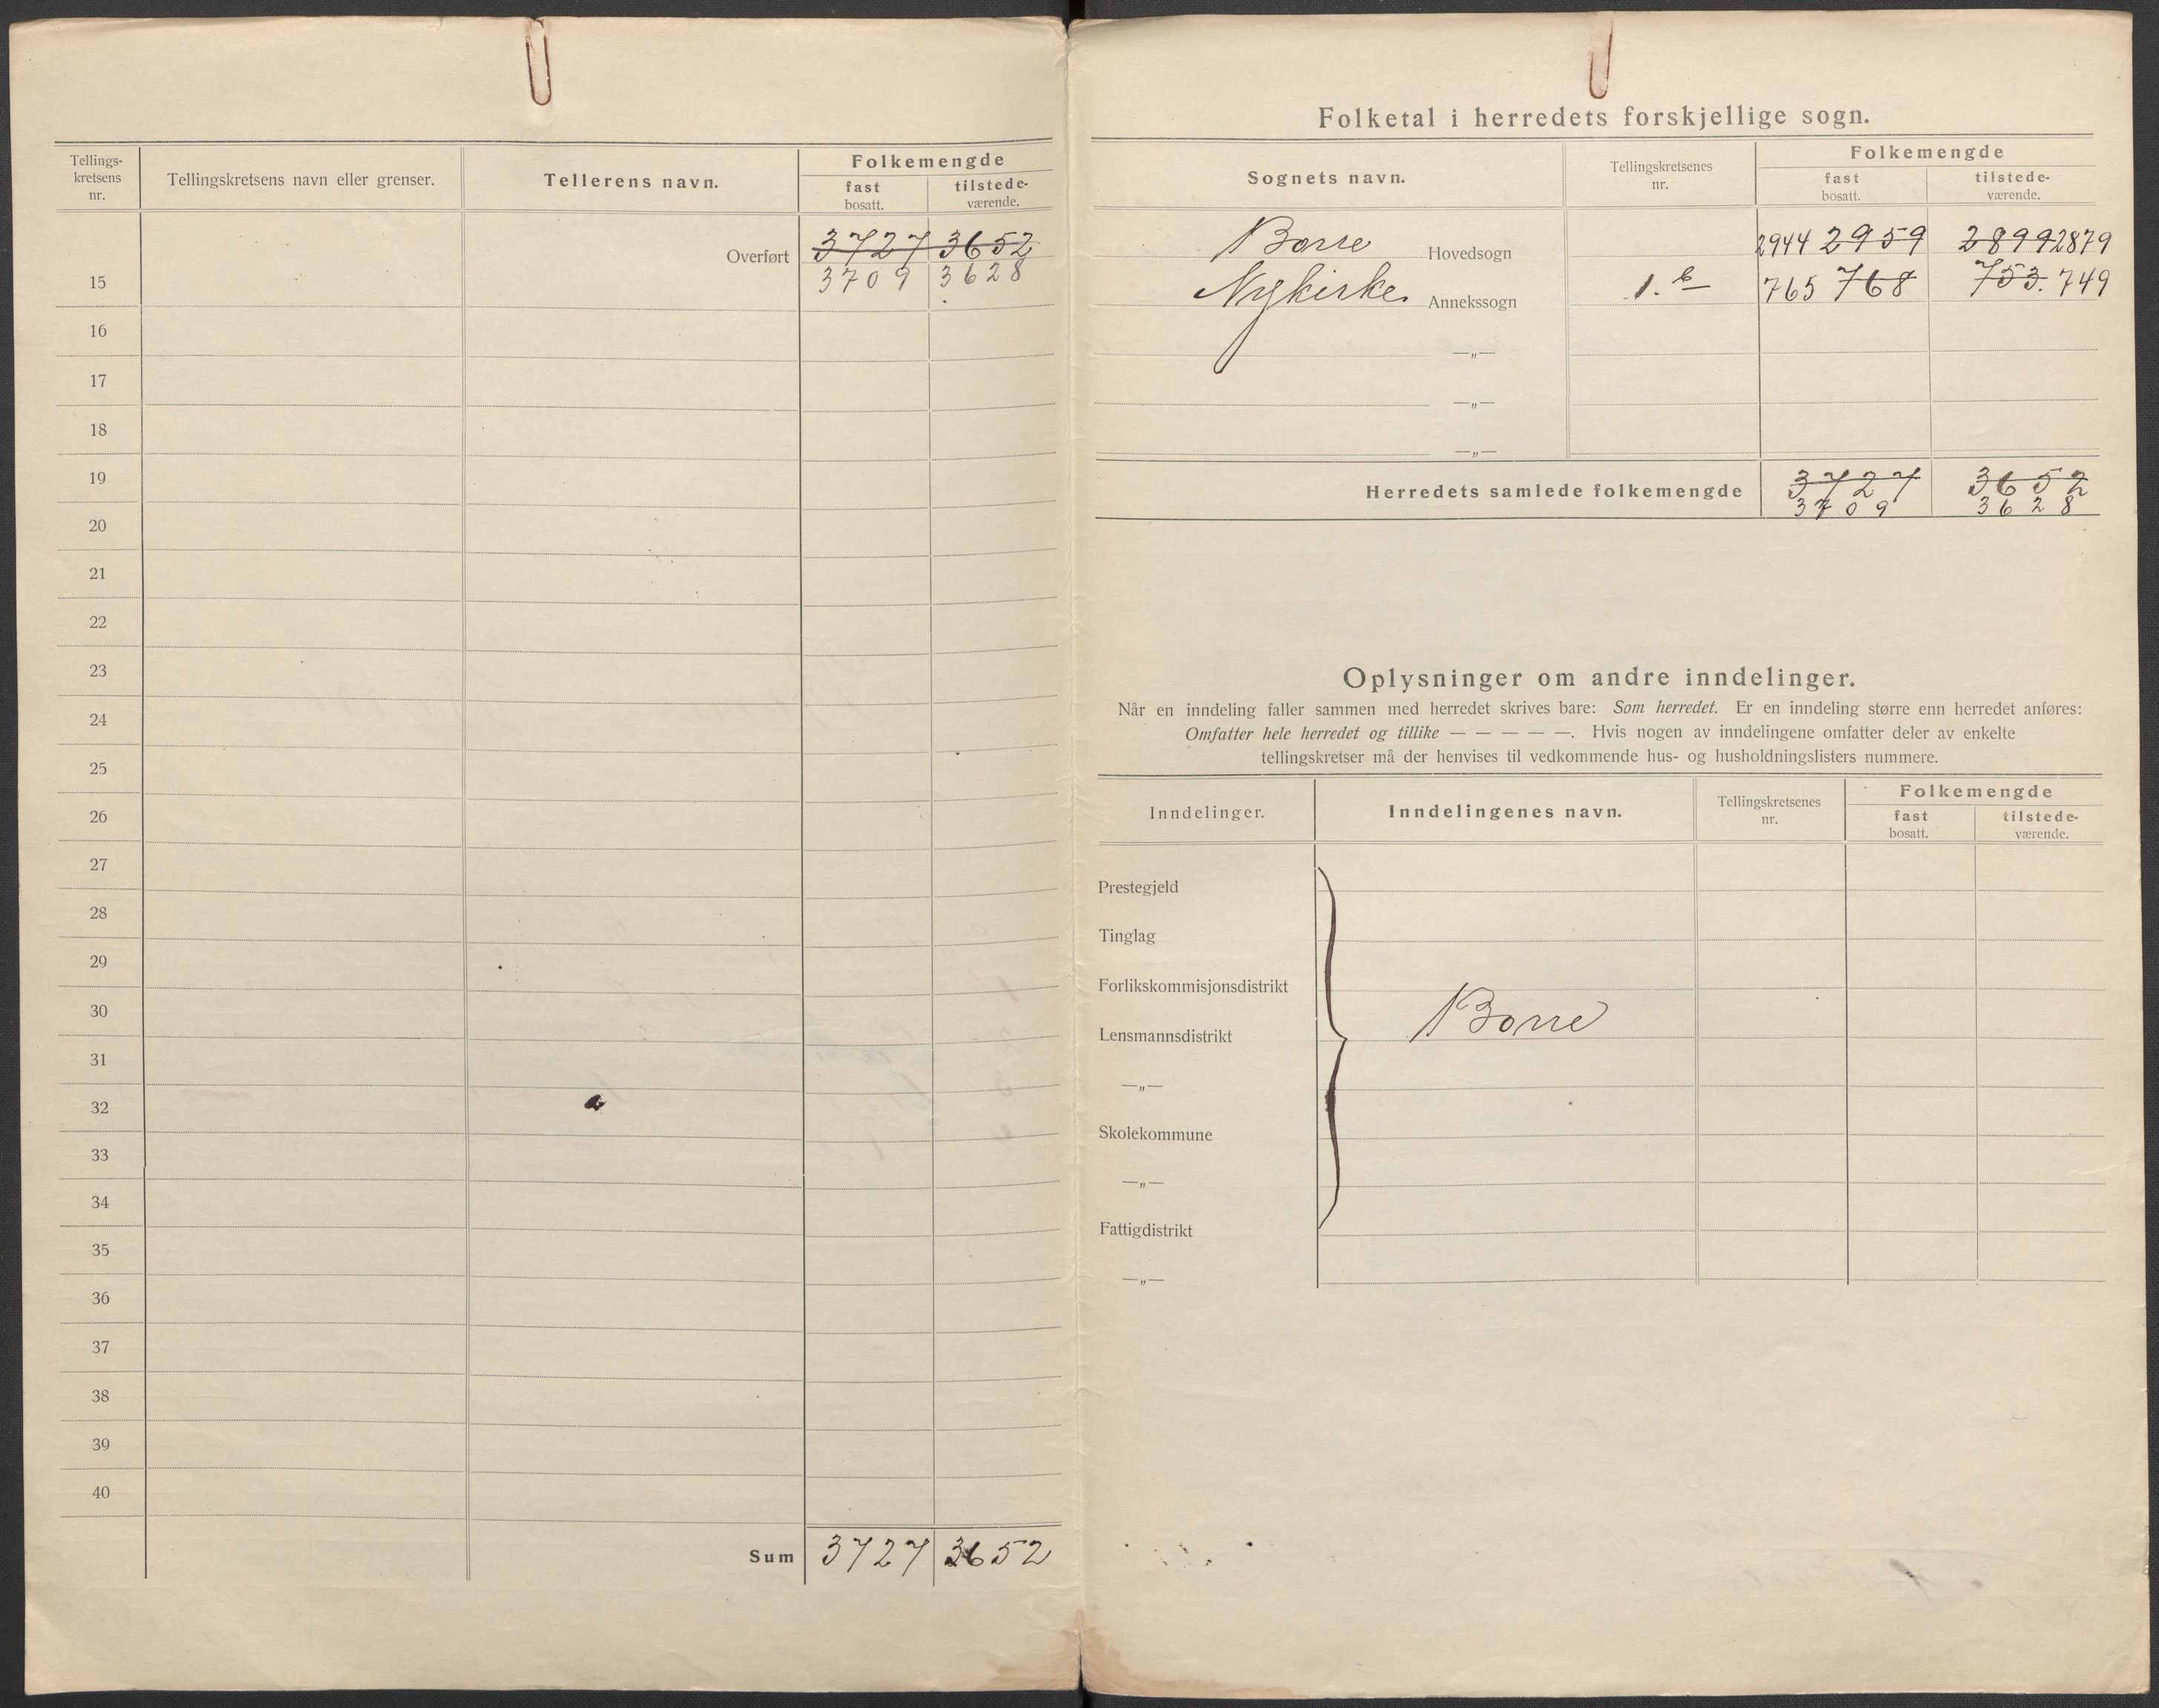 Tellings-
kretsens
nr.
Tellingskretsens navn eller grenser.
Tellerens navn.
Folkemengde
fast
bosatt.
tilstede-
værende.
Overført 3727 3652
3709 3628
15
16
17
18
19
20
21
22
23
24
25
26
27
28
29
30
31
32
33
34
35
36
37
38
39
40
Sum 3727 3652
Folketal i herredets forskjellige sogn.
Sognets navn.
Tellingskretsenes
nr.
Folkemengde
fast
bosatt.
tilstede-
værende.
Borre Hovedsogn 2944 2959 2899 2879
Nykirke Annekssogn 1. 765 768 753. 749
—„—
—„—
—„—
Herredets samlede folkemengde 3727 3652
3709 3628
Oplysninger om andre inndelinger.
Når en inndeling faller sammen med herredet skrives bare: Som herredet. Er en inndeling større enn herredet anføres:
Omfatter hele herredet og tillike — — — — —. Hvis nogen av inndelingene omfatter deler av enkelte
tellingskretser må der henvises til vedkommende hus- og husholdningslisters nummere.
Inndelinger.
Inndelingenes navn.
Tellingskretsenes
nr.
Folkemengde
fast
bosatt.
tilstede-
værende.
Prestegjeld
Tinglag
Forlikskommisjonsdistrikt
Borre
Lensmannsdistrikt
—„—
Skolekommune
—„—
Fattigdistrikt
—„—